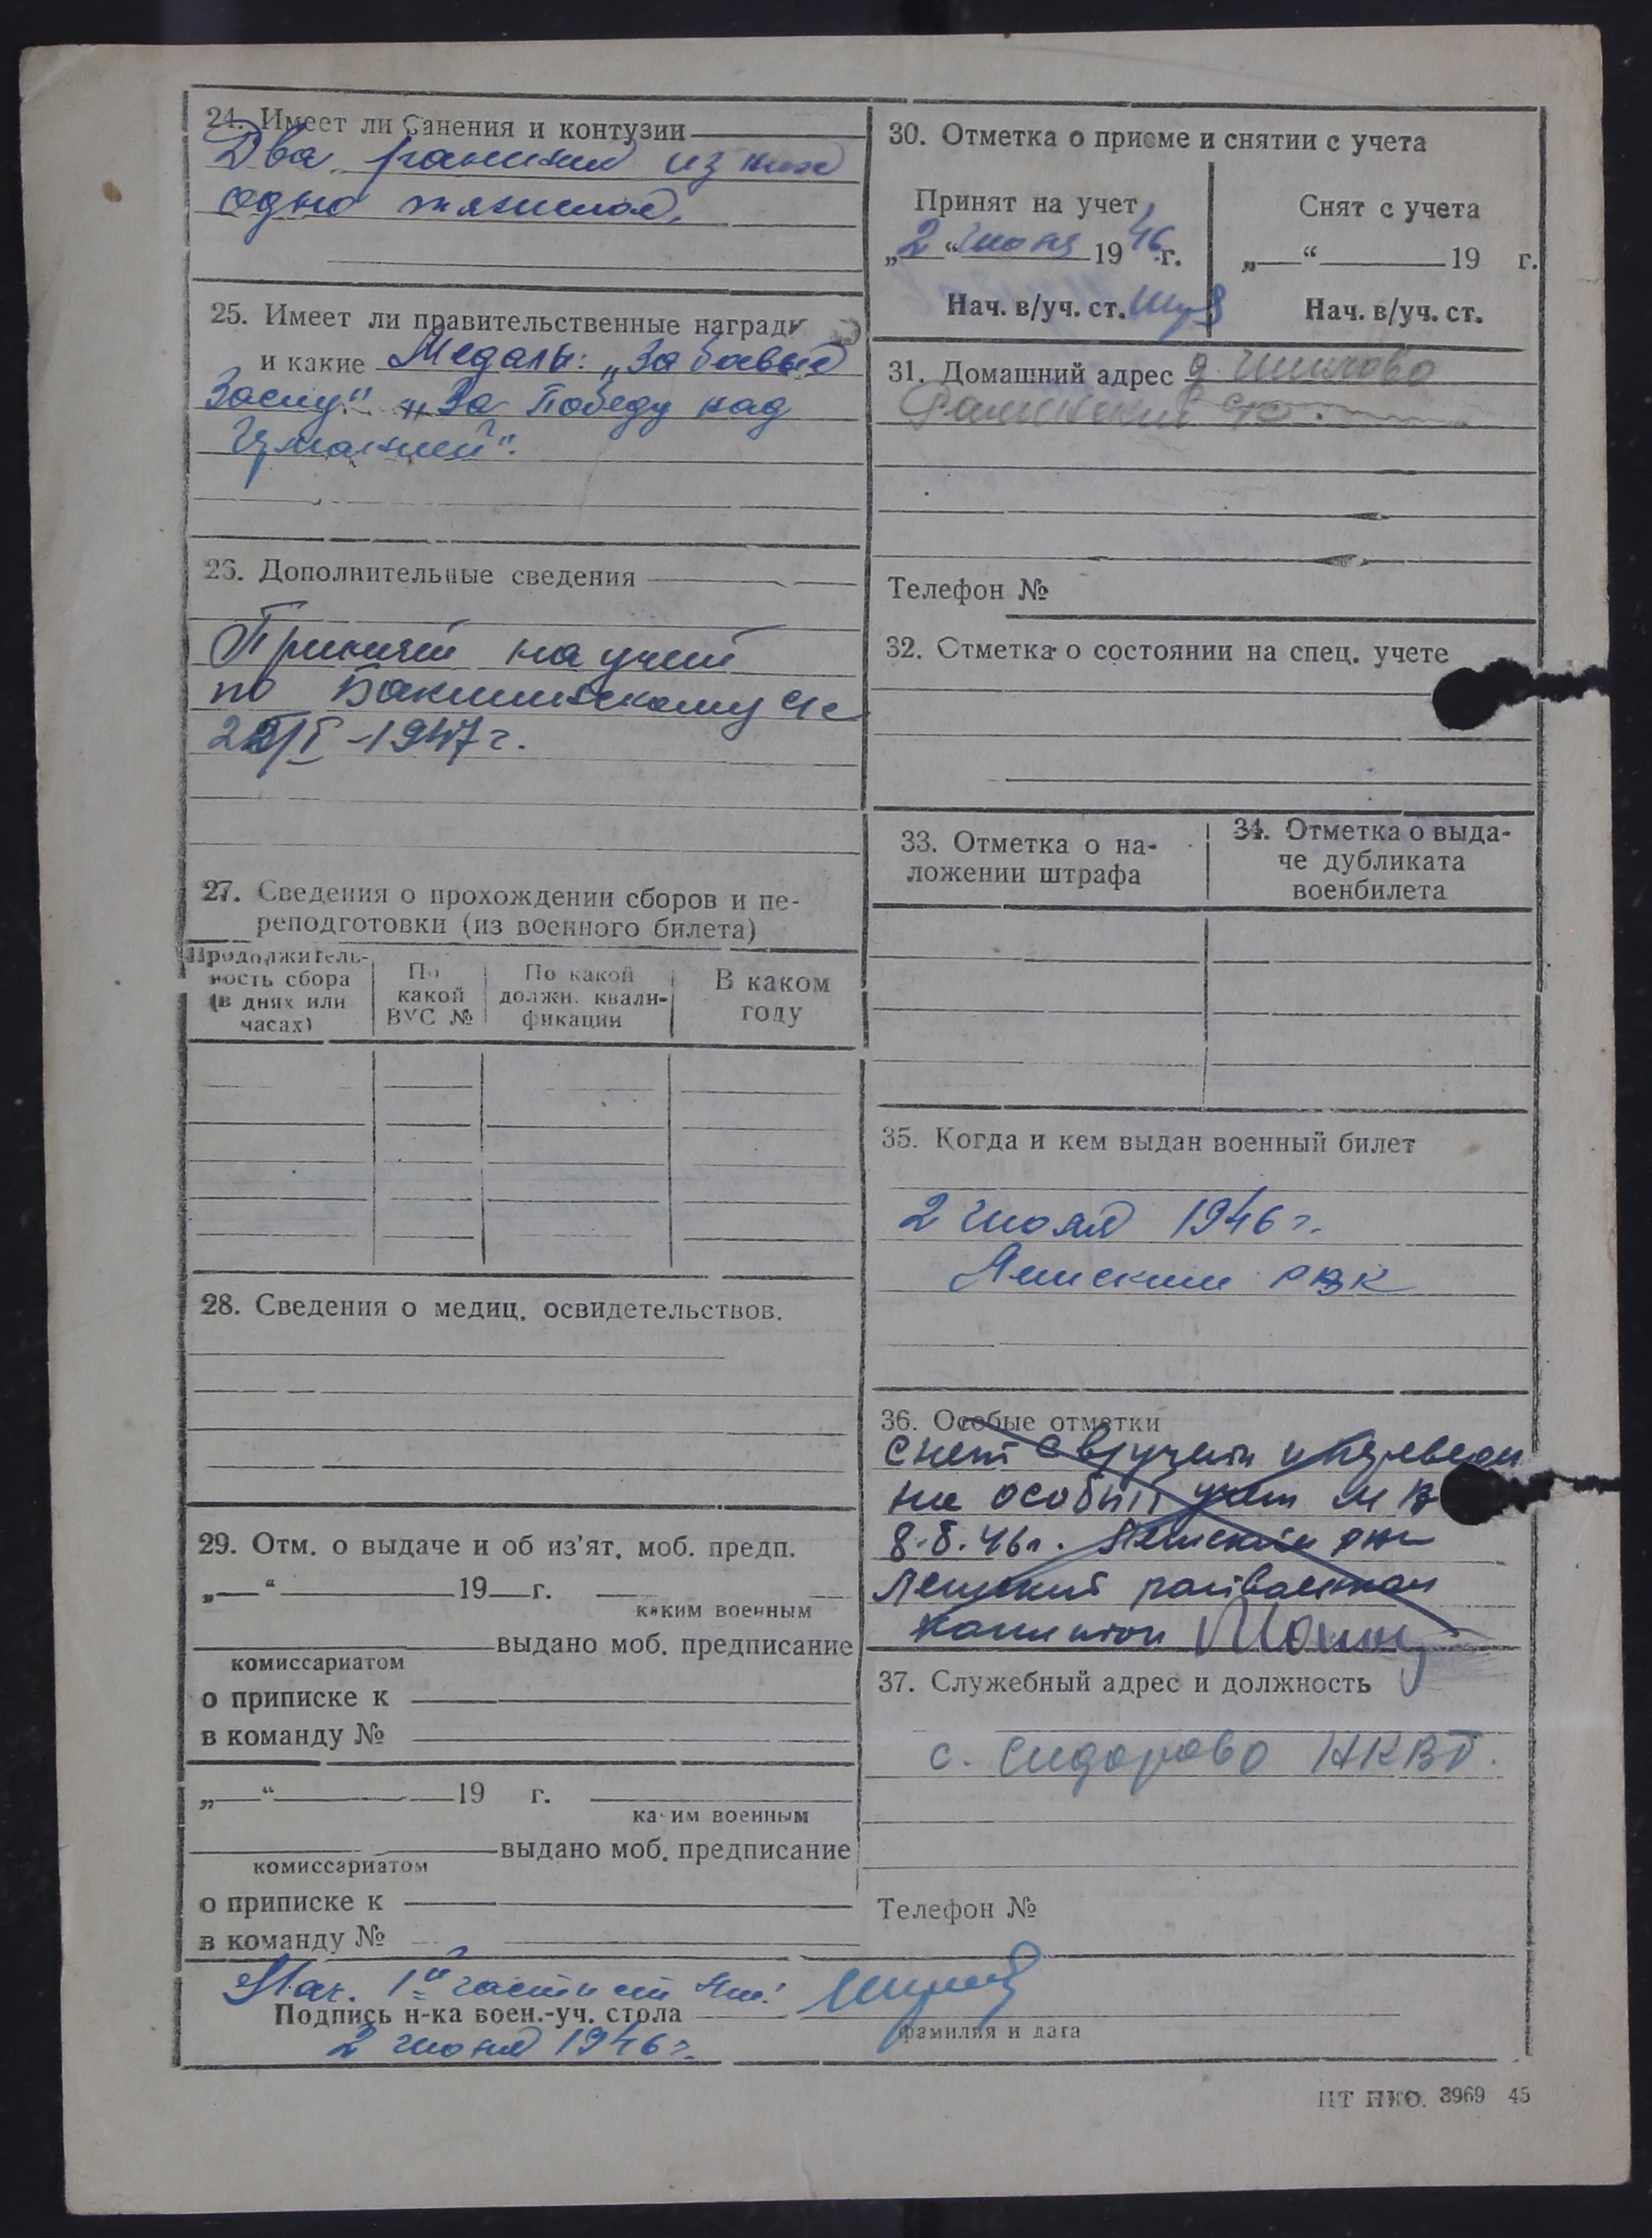 24. Имеет ли ранения и контузии
Два ранения из них
одно тяжелое,
25. Имеет ли правительственные награды
и какие Медаль: „За боевые
Заслу" „За Победу над
Германией".
26. Дополнительные сведения
Принят на учет
по Бакшинскому
1947 г.
27. Сведения о прохождении сборов и пе-
реподготовки (из военного билета)
Продолжитель-
ность сбора
(в днях или
часах)
По
какой
ВУС №
По какой
должн. квали-
фикации
В каком
году
28. Сведения о медиц. освидетельствов.
29. Отм. о выдаче и об из'ят. моб. предп.
„ “ 19 г.
каким военным
выдано моб. предписание
комиссариатом
о приписке к
в команду №
„ “ 19 г.
каким военным
выдано моб. предписание
комиссариатом
о приписке к
в команду №
30. Отметка о приеме и снятии с учета
Принят на учет
„2“ июня 1946 г.
Нач. в/уч. ст.
Снят с учета
„ “ 19 г.
Нач. в/уч. ст.
31. Домашний адрес д.
Телефон №
32. Отметка о состоянии на спец. учете
33. Отметка о на-
ложении штрафа
34. Отметка о выда-
че дубликата
военбилета
35. Когда и кем выдан военный билет
2 июня 1946 г.
РВК
36. Особые отметки
снят с в/учета и переведен
на особый учет
8.8.46г.
райвоенком
капитан
37. Служебный адрес и должность
с. Сидорово НКВД.
Телефон №
Нач. 1й части
Подпись н-ка воен.-уч. стола
фамилия и дата
2 июня 1946 г.
ЦТ НКО. 3969 45